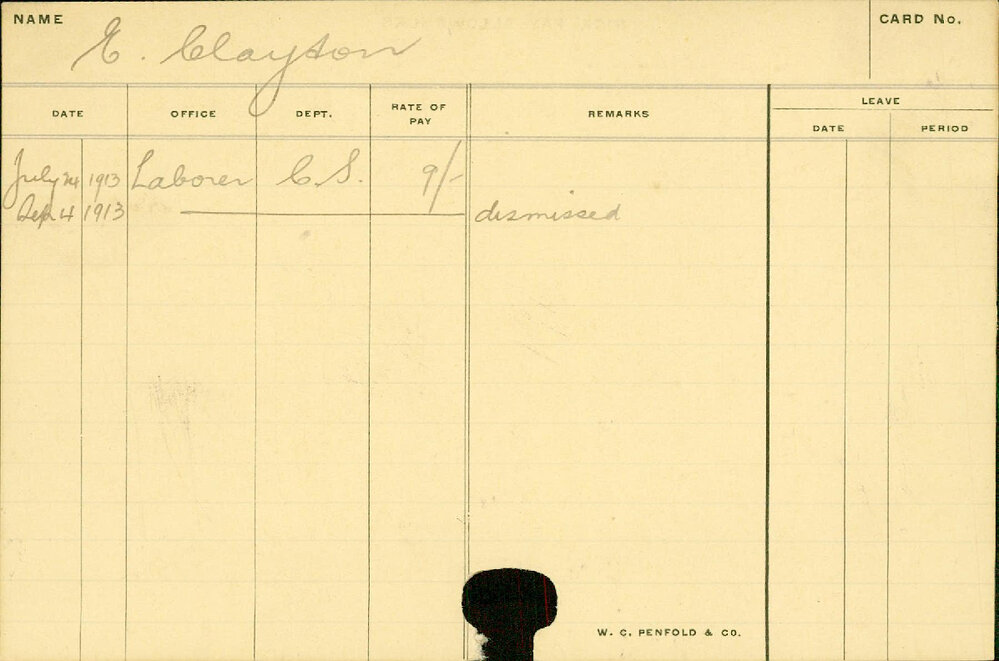 NAME E. Clayton CARD No.
DATE OFFICE DEPT. RATE OF PAY REMARKS LEAVE
DATE PERIOD
July 24 1913 Laborer C.S. 9/-
Sep 4 1913 dismissed
W. C. PENFOLD & CO.